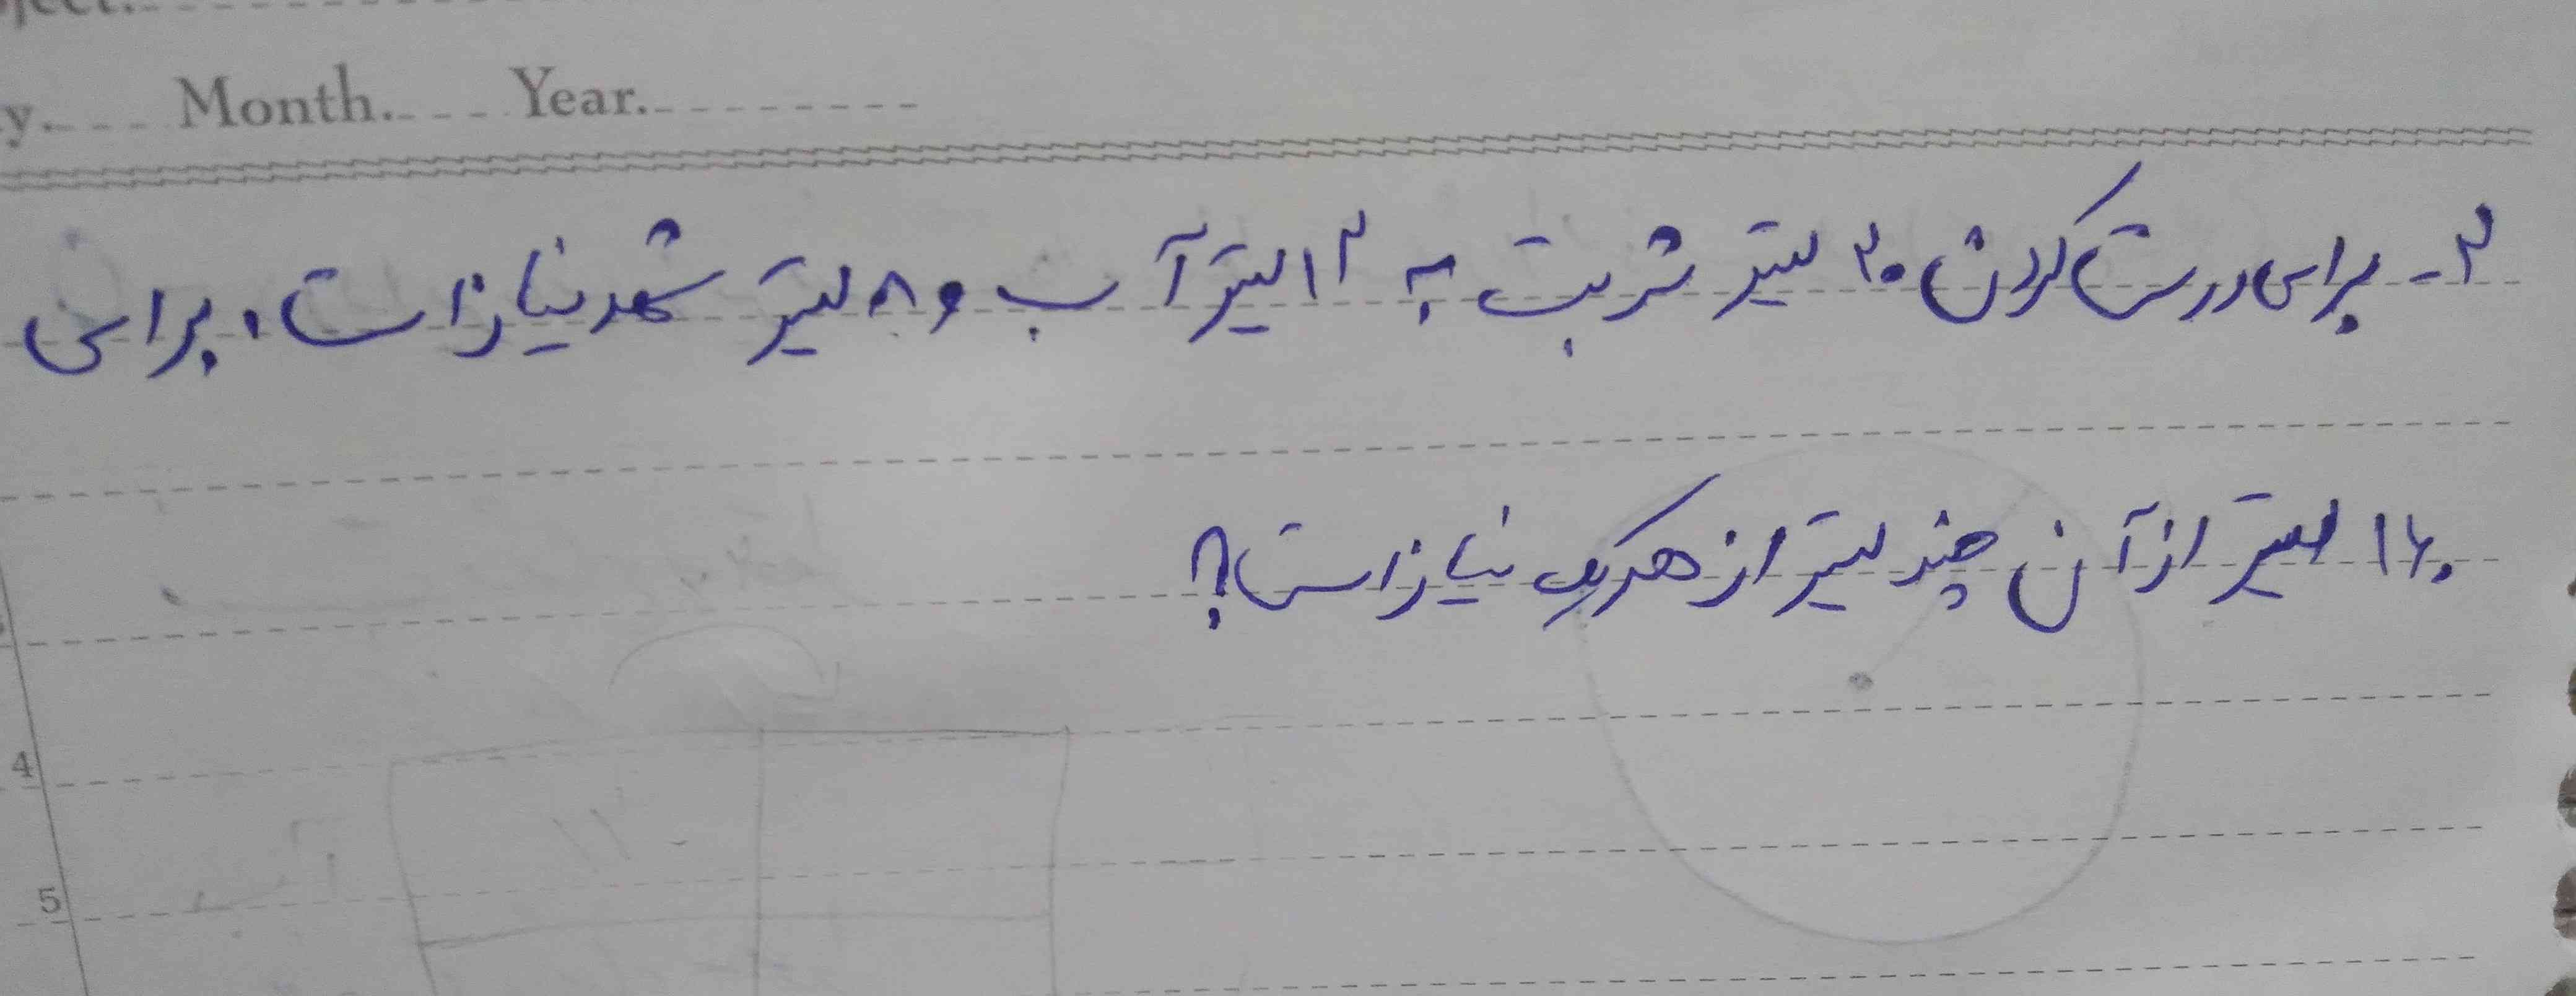 Month. Year.
۲- برای درست کردن ۲۰ لیتر شربت به ۱۲ لیتر آب و ۸ لیتر شهد نیاز است، برای
۱۶۰ لیتر از آن چند لیتر از هر یک نیاز است؟
4
5